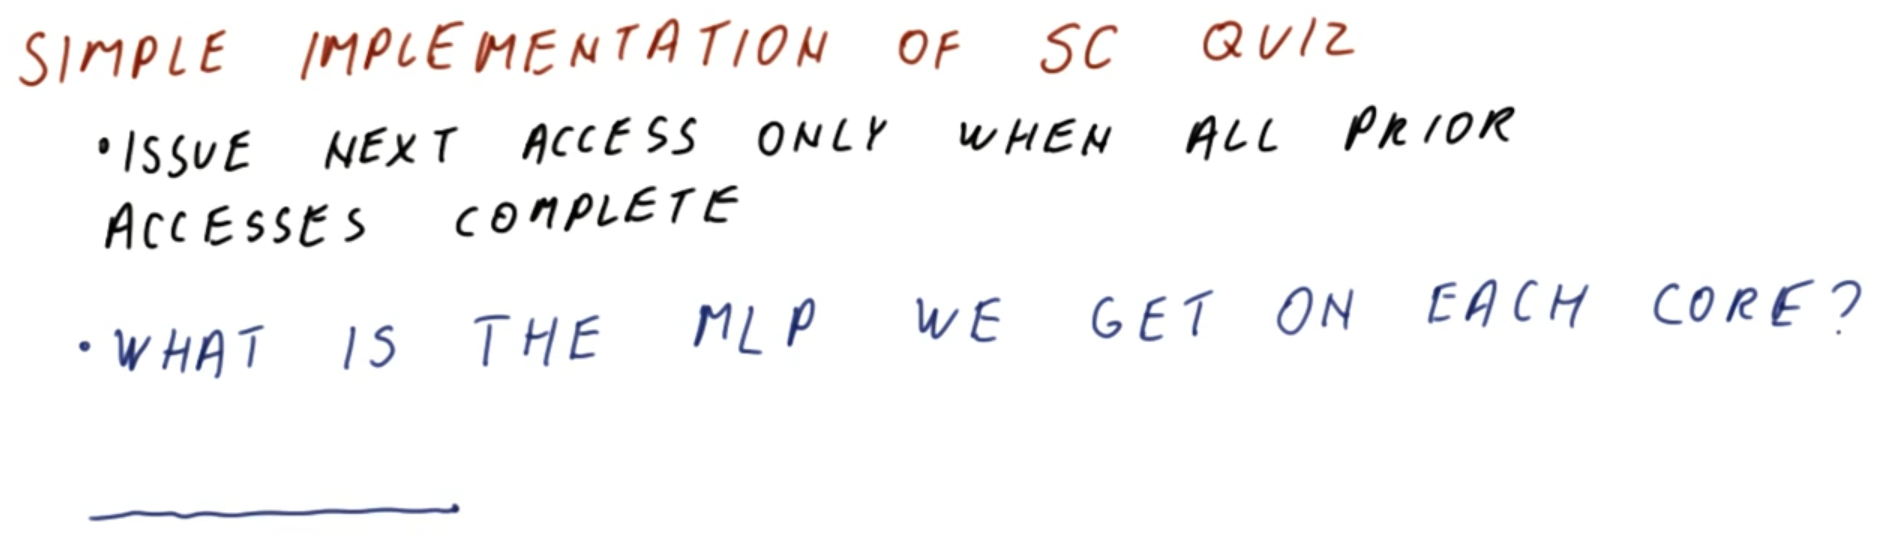 SIMPLE IMPLEMENTATION OF SC QUIZ
• ISSUE NEXT ACCESS ONLY WHEN ALL PRIOR
ACCESSES COMPLETE
• WHAT IS THE MLP WE GET ON EACH CORE?